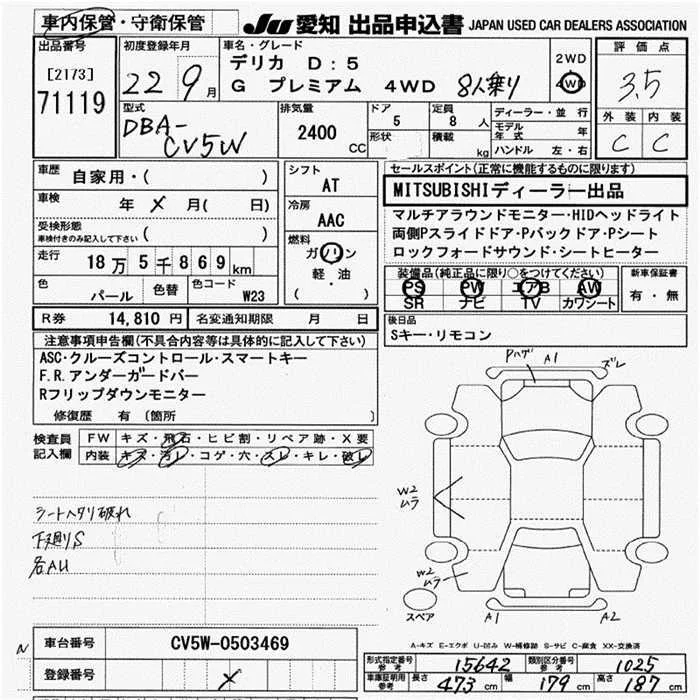 車内保管・守衛保管
JU 愛知 出品申込書 JAPAN USED CAR DEALERS ASSOCIATION
出品番号
[2173]
71119
初度登録年月
22 9月
車名・グレード
デリカ D:5
G プレミアム 4WD 8人乗り
2WD
4WD
評価点
3.5
外装 内装
C C
型式
DBA-
CV5W
排気量
2400
CC
ドア
5
形状
定員
8 人
積載
kg
ディーラー・並行
モデル年式 年
ハンドル 左・右
車歴
自家用・( )
車検
年 × 月( 日)
受検形態
車検付きのみ記入して下さい ( )
走行
18万5千869km
色
パール
色替
色コード
W23
シフト
AT
冷房
AAC
燃料
ガソリン
軽・油
( )
セールスポイント(正常に機能するものに限ります)
MITSUBISHIディーラー出品
マルチアラウンドモニター・HIDヘッドライト
両側Pスライドドア・Pバックドア・Pシート
ロックフォードサウンド・シートヒーター
装備品(純正品に限り○をつけてください)
PS PW エアB AW
SR ナビ TV カワシート
新車保証書
有・無
R券 14,810 円 名変通知期限 月 日
後日品
Sキー・リモコン
注意事項申告欄(不具合内容等は具体的に記入して下さい)
ASC・クルーズコントロール・スマートキー
F.R.アンダーガードバー
Rフリップダウンモニター
修復歴 有 〔箇所 〕
検査員記入欄
FW キズ・飛石・ヒビ割・リペア跡・X要
内装 キズ・汚レ・コゲ・穴・スレ・キレ・破レ
シートヘタリ破れ
下廻りS
各AU
Pハゲ A1 ズレ
W2
ムラ
W2
ムラ
スペア
A1 A2
A-キズ E-エクボ U-凹み W-補修跡 S-サビ C-腐食 XX-交換済
N
車台番号 CV5W-0503469
登録番号 ×
形式指定番号参考 15642 類別区分番号参考 1025
車庫証明用参考 長さ 473cm 幅 179cm 高さ 187cm